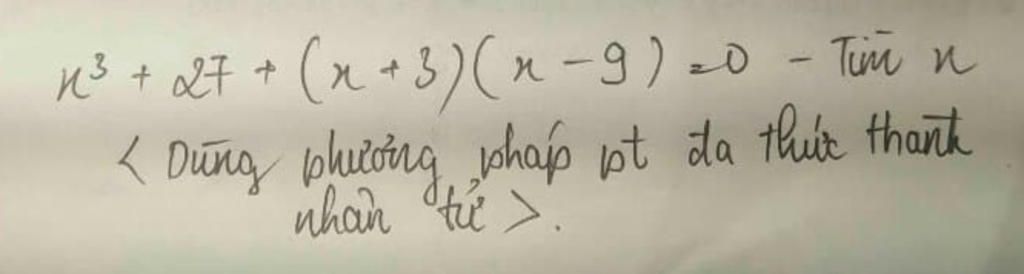 x³ + 27 + (x + 3)(x - 9) = 0 - Tìm x
< Dùng phương pháp pt đa thức thành
nhân tử >.